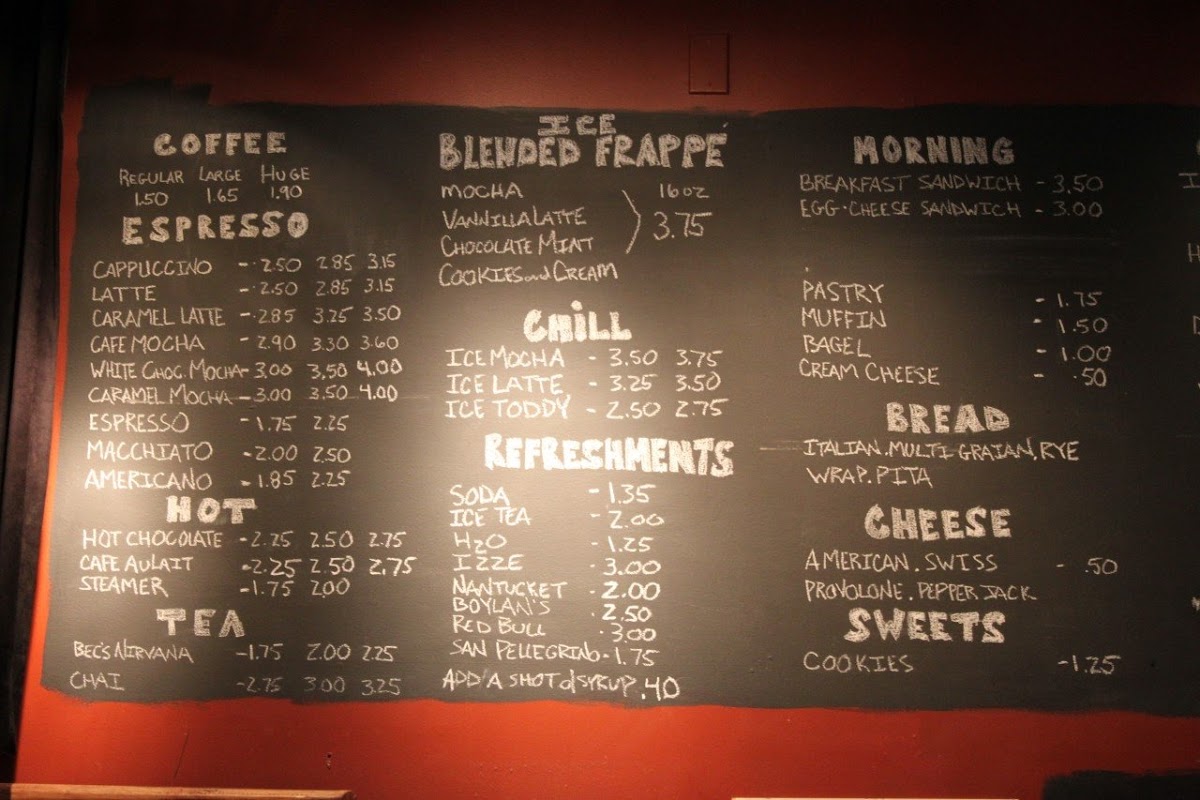 COFFEE
REGULAR LARGE HUGE
1.50 1.65 1.90
ESPRESSO
CAPPUCCINO - 2.50 2.85 3.15
LATTE - 2.50 2.85 3.15
CARAMEL LATTE - 2.85 3.25 3.50
CAFE MOCHA - 2.90 3.30 3.60
WHITE CHOC. MOCHA - 3.00 3.50 4.00
CARAMEL MOCHA - 3.00 3.50 4.00
ESPRESSO - 1.75 2.25
MACCHIATO - 2.00 2.50
AMERICANO - 1.85 2.25
HOT
HOT CHOCOLATE - 2.25 2.50 2.75
CAFE AULAIT - 2.25 2.50 2.75
STEAMER - 1.75 2.00
TEA
BEC'S NIRVANA - 1.75 2.00 2.25
CHAI - 2.75 3.00 3.25
ICE
BLENDED FRAPPÉ
MOCHA 16oz
VANNILLA LATTE 3.75
CHOCOLATE MINT
COOKIES and CREAM
CHiLL
ICE MOCHA - 3.50 3.75
ICE LATTE - 3.25 3.50
ICE TODDY - 2.50 2.75
REFRESHMENTS
SODA - 1.35
ICE TEA - 2.00
H2O - 1.25
IZZE - 3.00
NANTUCKET - 2.00
BOYLAN'S - 2.50
RED BULL - 3.00
SAN PELLEGRINO - 1.75
ADD A SHOT of SYRUP .40
MORNING
BREAKFAST SANDWICH - 3.50
EGG·CHEESE SANDWICH - 3.00
PASTRY - 1.75
MUFFIN - 1.50
BAGEL - 1.00
CREAM CHEESE - .50
BREAD
ITALIAN. MULTI GRAIAN. RYE
WRAP. PITA
CHEESE
AMERICAN. SWISS - .50
PROVOLONE. PEPPER JACK
SWEETS
COOKIES - 1.25